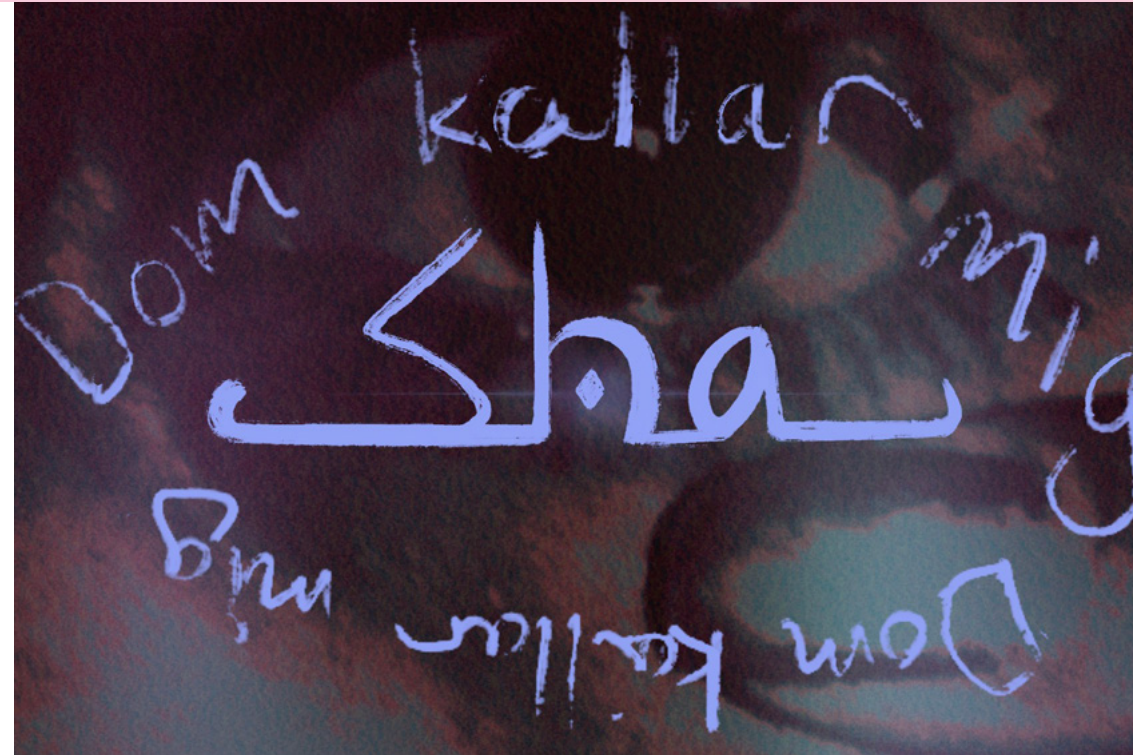 Dom kallar mig
Sha
Dom kallar mig